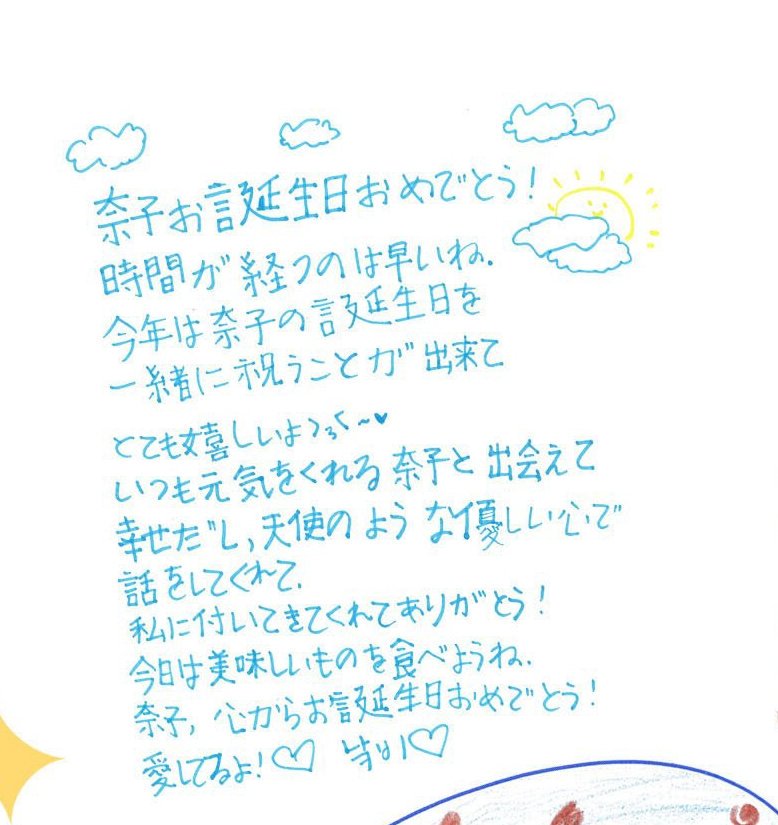 奈子お誕生日おめでとう!
時間が経つのは早いね.
今年は奈子の誕生日を
一緒に祝うことが出来て
とても嬉しいよ
いつも元気をくれる奈子と出会えて
幸せだし,天使のような優しい心で
話をしてくれて.
私に付いてきてくれてありがとう!
今日は美味しいものを食べようね.
奈子,心からお誕生日おめでとう!
愛してるよ!♡ 낭비♡